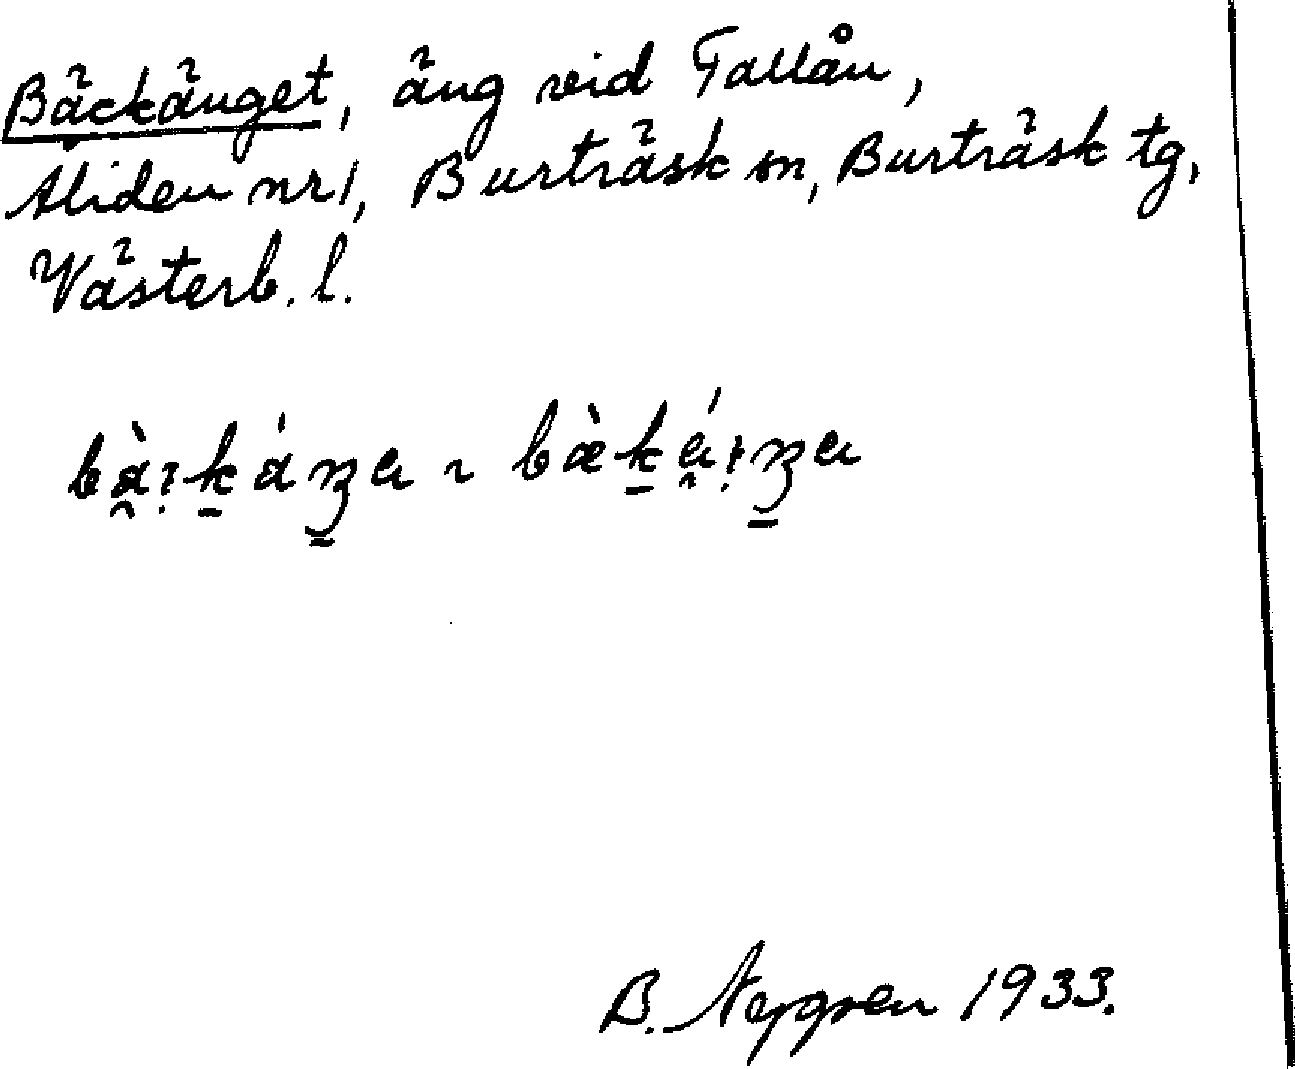 Bäckänget, äng vid Tallån,
Åliden nr 1, Burträsk sn, Burträsk tg,
Västerb. l.
B. Nygren 1933.